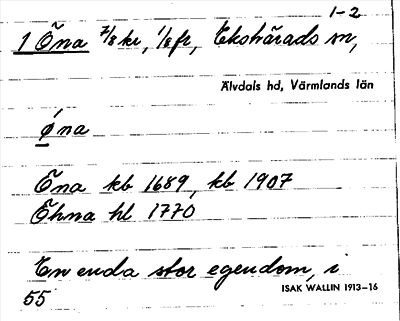 1-2
1 Öna 7/8 kr, 1/8 fr, Ekshärads sn,
Älvdals hd, Värmlands län
ǿna
Öna kb 1689, kb 1907
Öhna hl 1770
En enda stor egendom, i
ISAK WALLIN 1913-16
55